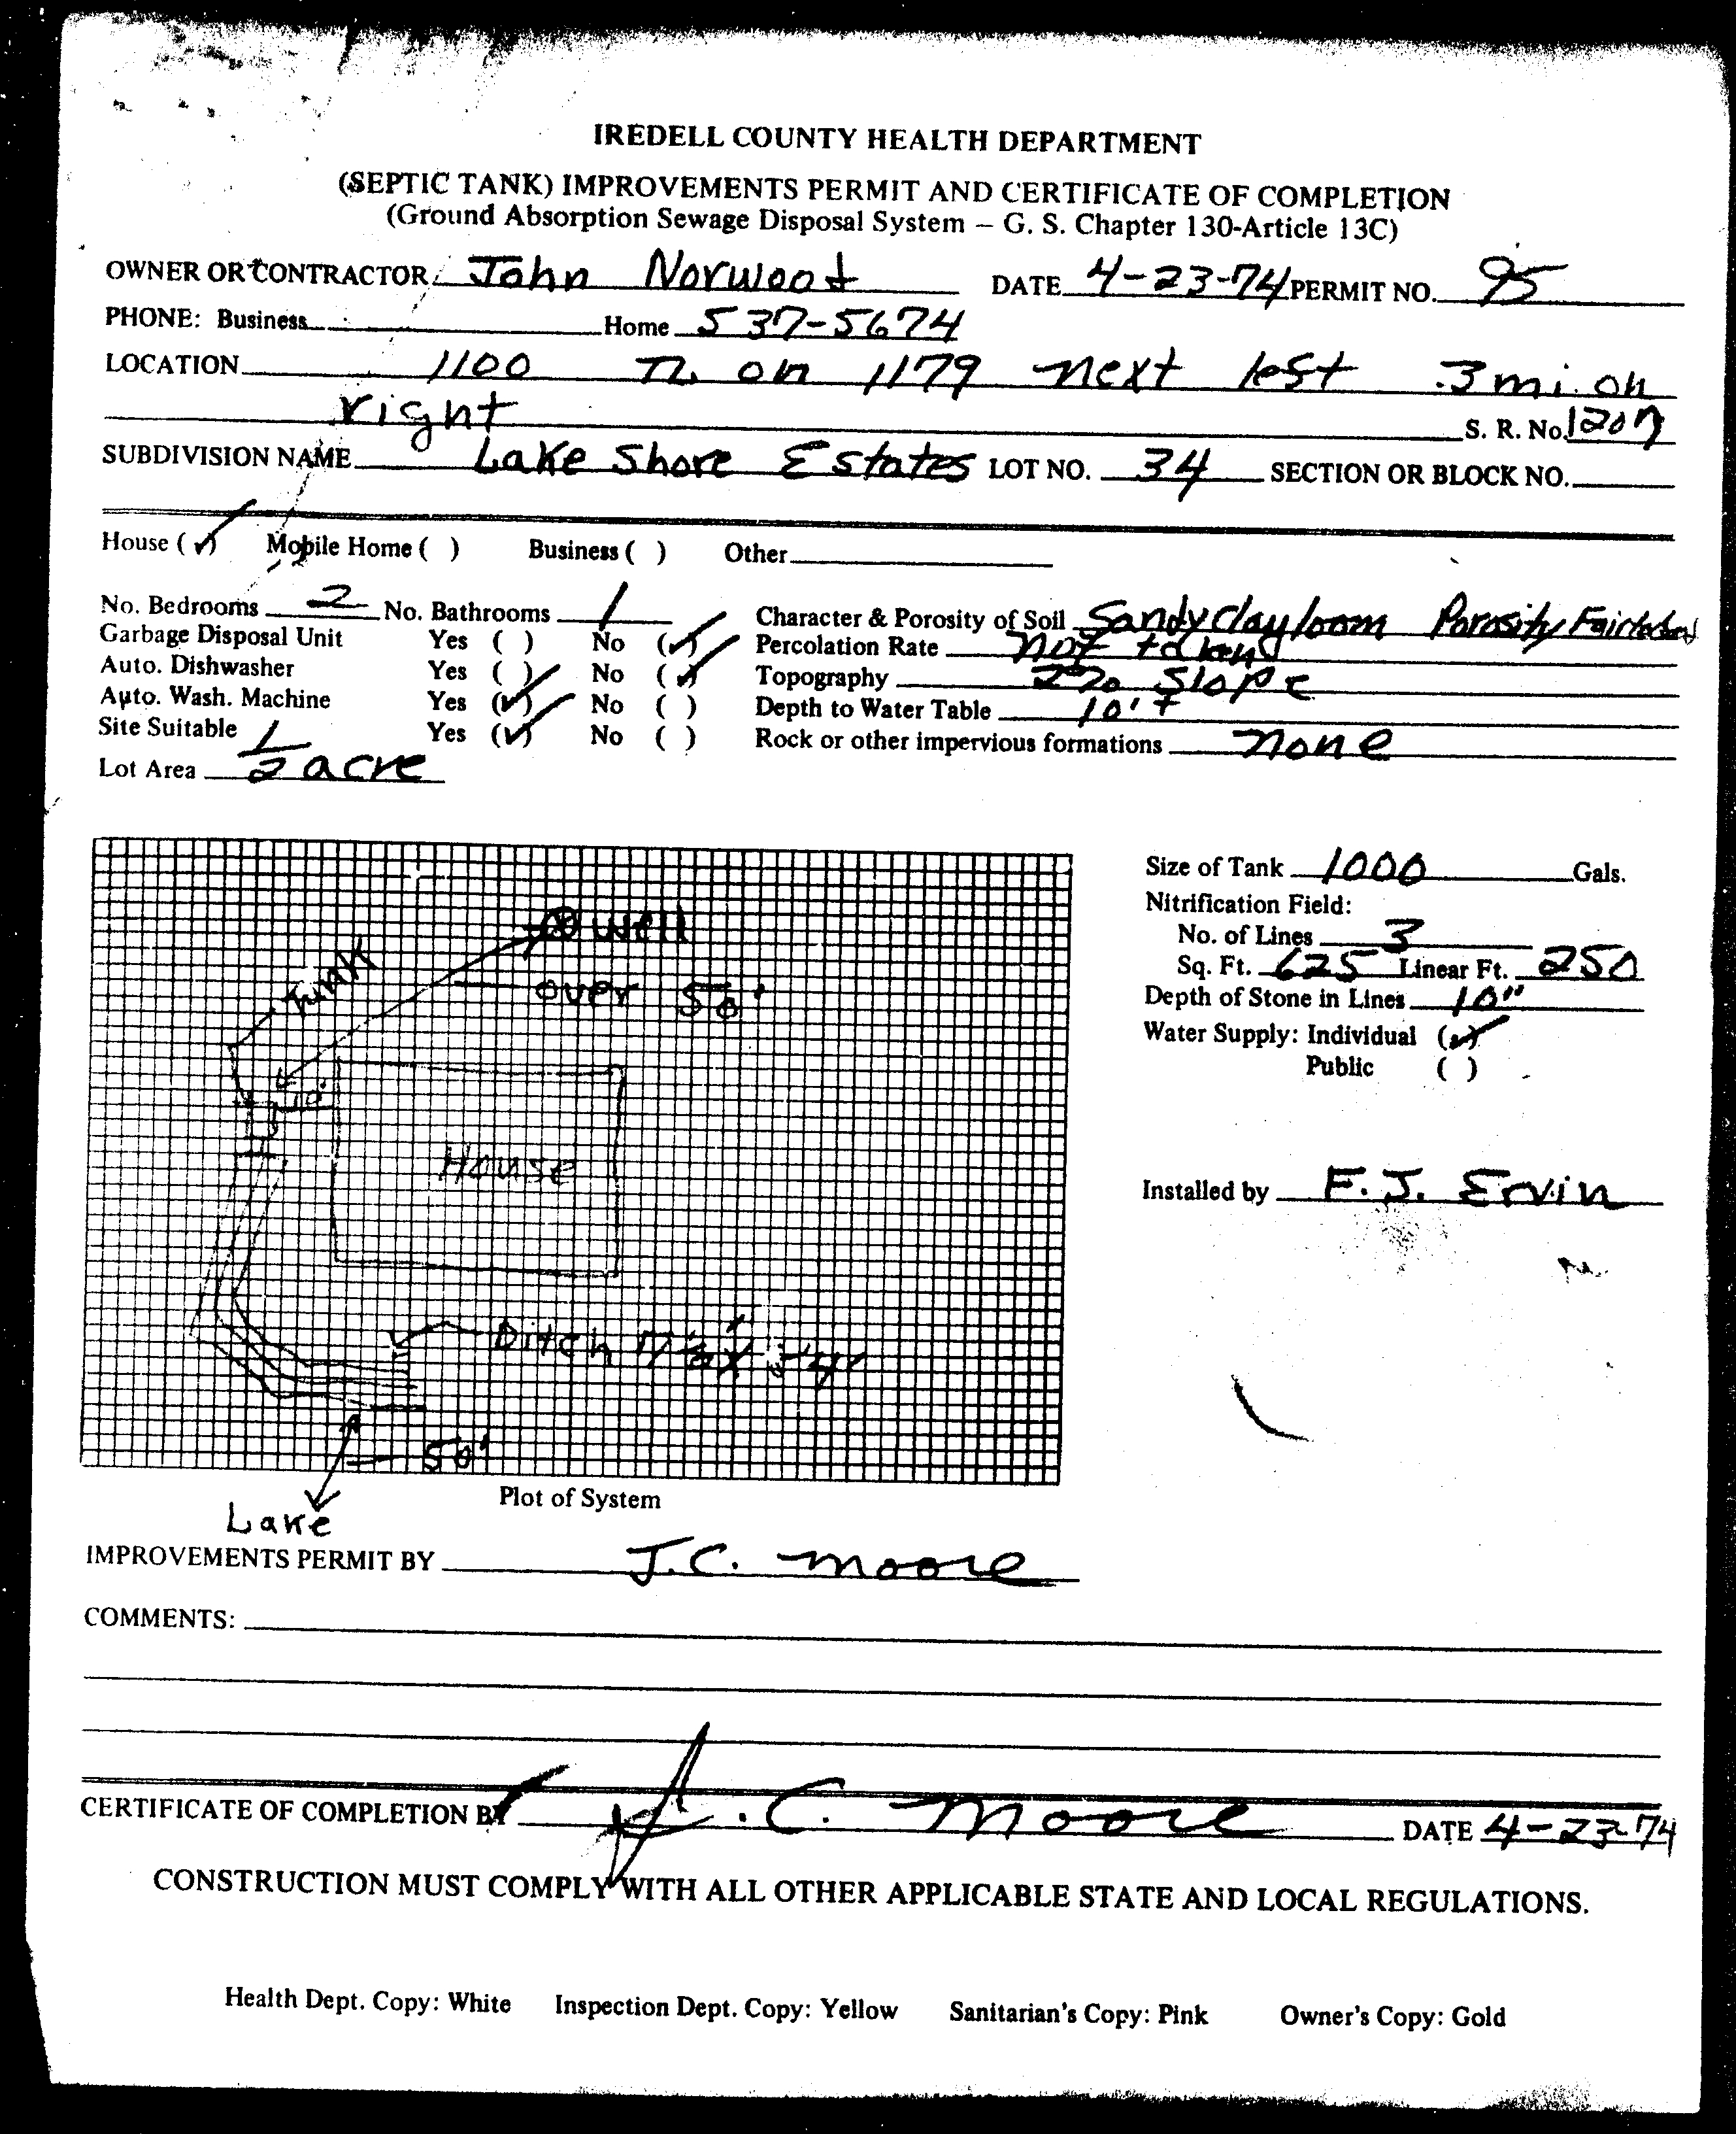 IREDELL COUNTY HEALTH DEPARTMENT
(SEPTIC TANK) IMPROVEMENTS PERMIT AND CERTIFICATE OF COMPLETION
(Ground Absorption Sewage Disposal System — G. S. Chapter 130-Article 13C)
OWNER OR CONTRACTOR John Norwood DATE 4-23-74 PERMIT NO. 95
PHONE: Business Home 537-5674
LOCATION 1100 on 1179 next left .3 mi. on
right S. R. No.
SUBDIVISION NAME Lake Shore Estates LOT NO. 34 SECTION OR BLOCK NO.
House (✓) Mobile Home ( ) Business ( ) Other
No. Bedrooms 2 No. Bathrooms 1 Character & Porosity of Soil Sandy clay loam Porosity Fair
Garbage Disposal Unit Yes ( ) No (✓) Percolation Rate not taken
Auto. Dishwasher Yes ( ) No (✓) Topography 2% Slope
Auto. Wash. Machine Yes (✓) No ( ) Depth to Water Table 10'+
Site Suitable Yes (✓) No ( ) Rock or other impervious formations none
Lot Area 1/2 acre
Size of Tank 1000 Gals.
Nitrification Field:
No. of Lines 3
Sq. Ft. 625 Linear Ft. 250
Depth of Stone in Lines 10"
Water Supply: Individual (✓)
Public ( )
Installed by F. J. Ervin
well
Tank
over 50'
10'
House
Ditch
50'
Lake
Plot of System
IMPROVEMENTS PERMIT BY J.C. Moore
COMMENTS:
CERTIFICATE OF COMPLETION BY J.C. Moore DATE 4-23-74
CONSTRUCTION MUST COMPLY WITH ALL OTHER APPLICABLE STATE AND LOCAL REGULATIONS.
Health Dept. Copy: White Inspection Dept. Copy: Yellow Sanitarian's Copy: Pink Owner's Copy: Gold